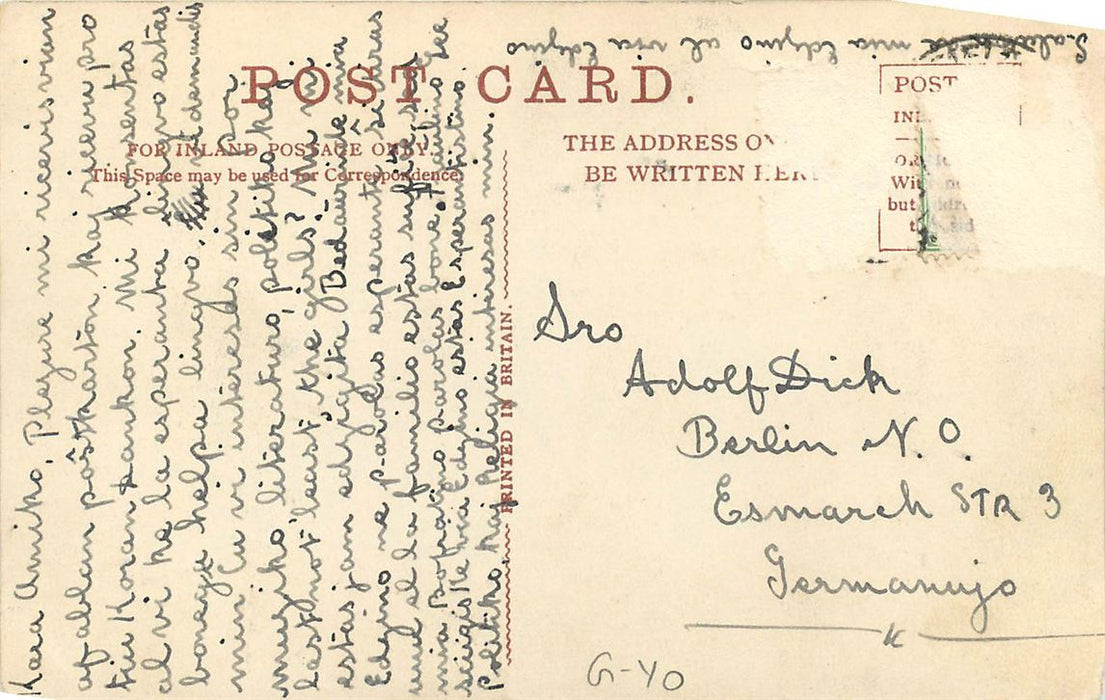 POST CARD.
FOR INLAND POSTAGE ONLY.
This Space may be used for Correspondence.
THE ADDRESS ON
BE WRITTEN HERE
POST
INL
but
PRINTED IN BRITAIN.
Kara Amiko, Plezure mi ricevis vian
afablan poŝtkarton kaj relevu pro
tiu Koran dankon. Mi konsentas
al vi ke la esperanta lingvo estas
bonega helpa lingvo. Vi demandis
min Ĉu vi interesis sin por
muziko literaturo, politiko kaj
last not least, the girls? Nu mi
estas jam edzigita Bedaŭrinde mia
Edzino ne parolas esperante sed ŝi
unu el la familio estas sufiĉe
mia Bofratino parolas bone. ke
sciigis ke via Edzino estas Esperantistino.
Politiko kaj Religio interesas min.
Salut mia Edzino al via Edzino
Sro
Adolf Dick
Berlin N. O.
Esmarch STR 3
Germanujo
G-40